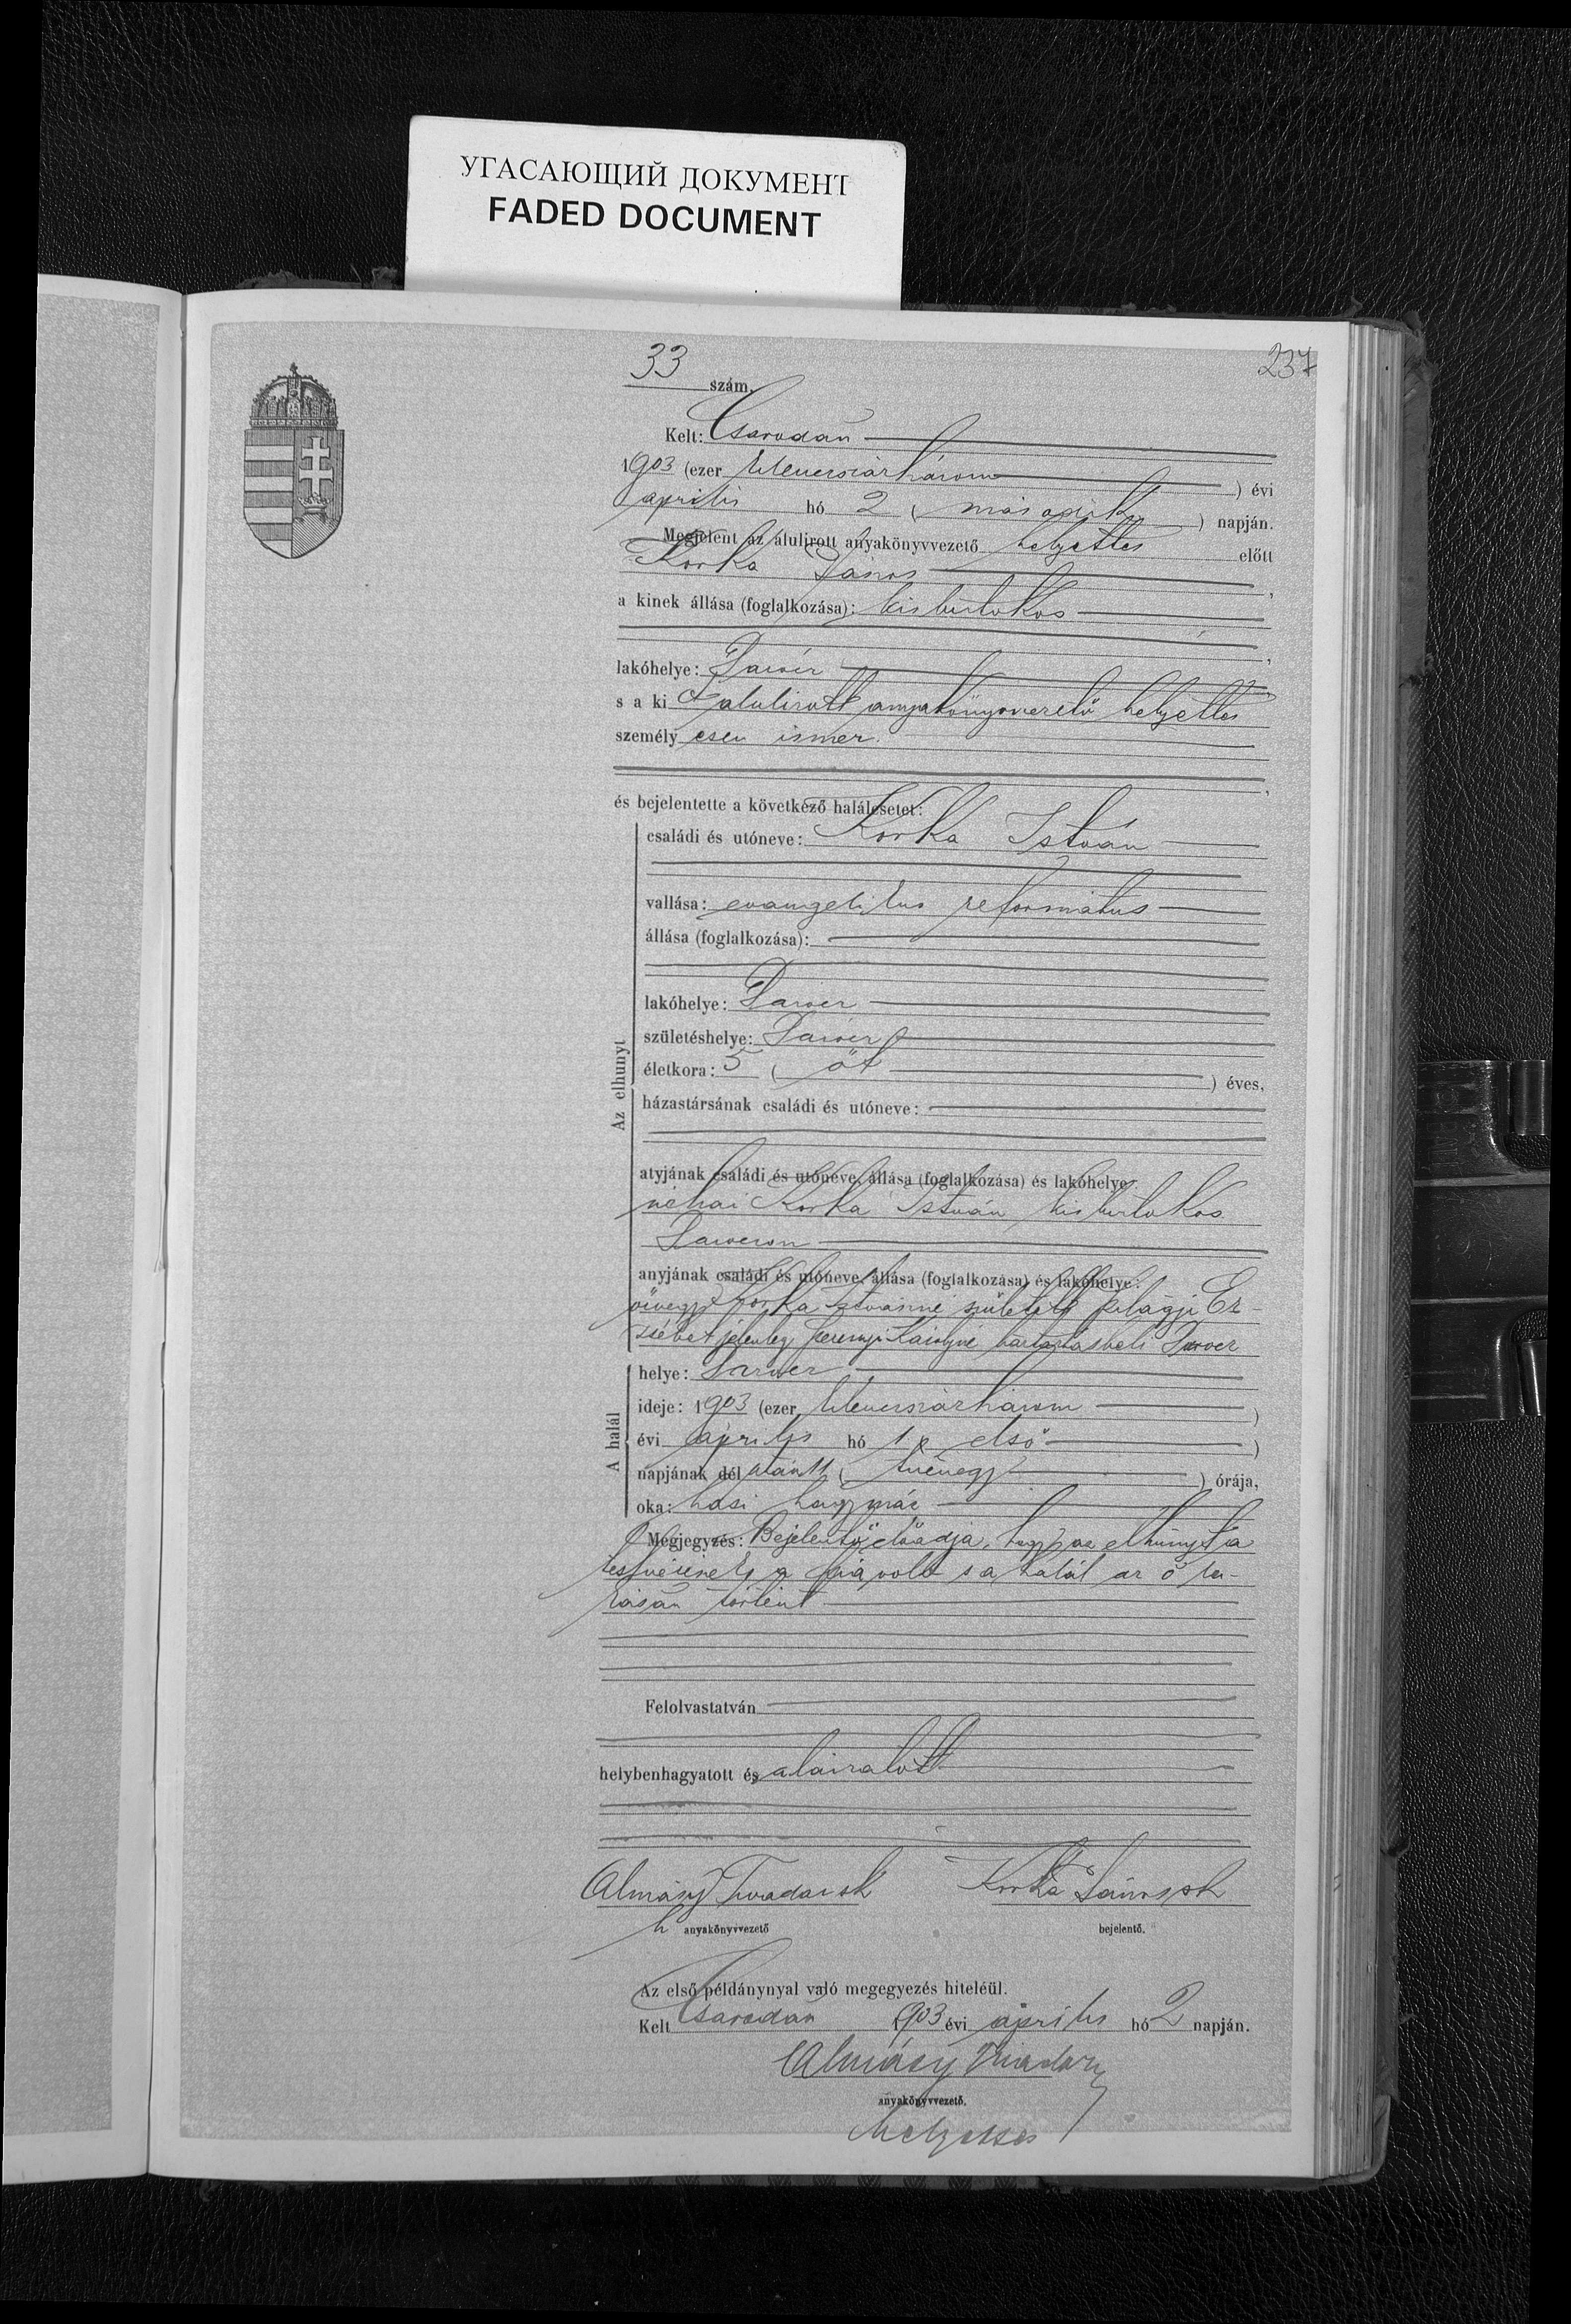 УГАСАЮЩИЙ ДОКУМЕНТ
FADED DOCUMENT
237
33 szám.
Kelt: Csarodán
1903 (ezer kilencszázhárom ) évi
április hó 2 ( második ) napján.
Megjelent az alulirott anyakönyvvezető helyettes előtt
Korka János ,
a kinek állása (foglalkozása): kisbirtokos
,
lakóhelye:
s a ki alulirott anyakönyvvezető helyettes
személyesen ismer.
,
és bejelentette a következő halálesetet:
Az elhunyt
családi és utóneve: Korka István
vallása: evangelikus református
állása (foglalkozása):
lakóhelye:
születéshelye:
életkora: 5 ( öt ) éves,
házastársának családi és utóneve:
atyjának családi és utóneve, állása (foglalkozása) és lakóhelye:
néhai Korka István kisbirtokos
anyjának családi és utóneve, állása (foglalkozása) és lakóhelye:
özvegy Korka Istvánné született Er-
zsébet jelenleg háztartásbeli
A halál
helye:
ideje: 1903 (ezer kilencszázhárom )
évi április hó 1 ( első )
napjának dél után 11 ( tizenegy ) órája,
oka: hasi hagymáz
Megjegyzés: Bejelentő előadja, hogy az elhunyt a
testvérének a fia volt s a halál az ő la-
kásán történt
Felolvastatván
helybenhagyatott és aláiratott
Almásy Tivadar sk Korka János sk
h anyakönyvvezető bejelentő.
Az első példánynyal való megegyezés hiteléül.
Kelt Csarodán 1903 évi április hó 2 napján.
Almásy Tivadar
anyakönyvvezető.
helyettes